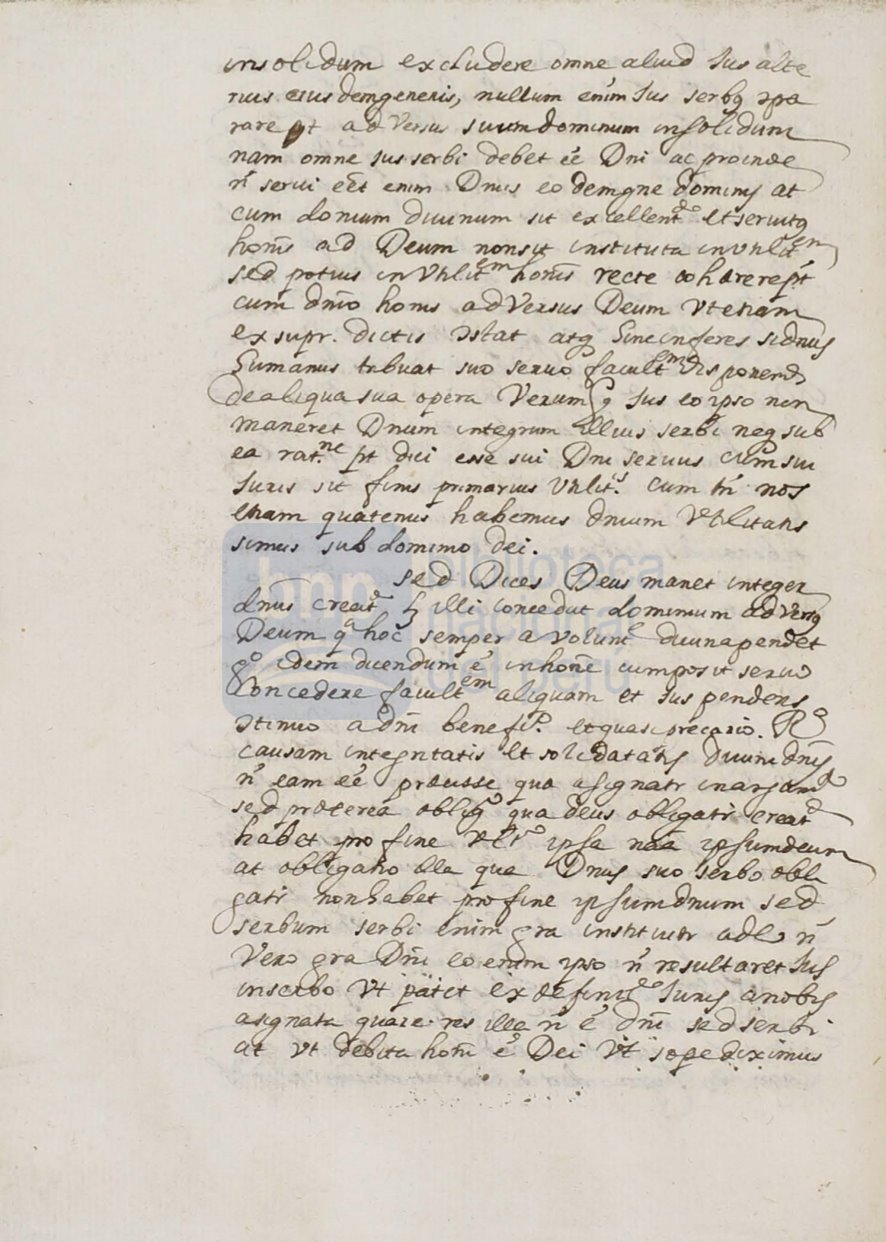 insolidum excludere omne aliud Jus alte
rius eius demgeneris, nullum enim Jus serbq 2pa
rare pt adversus suumdominum insolidum
nam omne Jus serbi debet eẽ Dni ac proinde
ñ servi eẽt enim Dnus eo demqne dominus at
cum domum divinum sit excellent et servitq
homs ad Deum nonsit instituta in Vtilitem
sed potius in Vtilitem homs recte cohærerept
cum dnio homs adversus Deum Vtetiam
ex supr. dictis 2stat atq hincinferes sidnus
humanus tribuat suo servo facultem disponendi
dealiqua sua opera Verum Jus eo ipso non
maneret Dnum integrum illius serbi neq sub
ea ratne pt dici esse sui Dni servus cumsui
Juris sit finis primarius Vtilits. cum tñ nos
etiam quatenus habemus dnium Vtilitatis
simus sub dominio dei.
sed Dices Deus manet integer
dnus creat illi concedat dominium adversq
Deum qa hoc semper a volunt divinapendet
go idem dicendum ẽ in home cumposit servo
concedere facultem aliquam et Jus pendens
2tinuo adni benefo. et quasi precario. Ro
causam integritatis et solidatatis divini dnij
ñ eam eẽ præcisse qua asignatr inargumto
sed præterea obligo qua deus obligatr creat
habet pro fine Vlto ipsa naa ipsumdeum
at obligatio illa qua Dnus suo serbo obli
gatr nonhabet pro fine ipsumdnum sed
serbum serbi enim gra instituitr adeo ñ
Vero gra Dni eo enim ipso ñ resultaret Jus
inserbo Vt patet ex definitne Juris anobis
asignata quare res illa ñ ẽ dni sedserbi
at Vt debita homi ẽ Dei Vt sæpe diximus